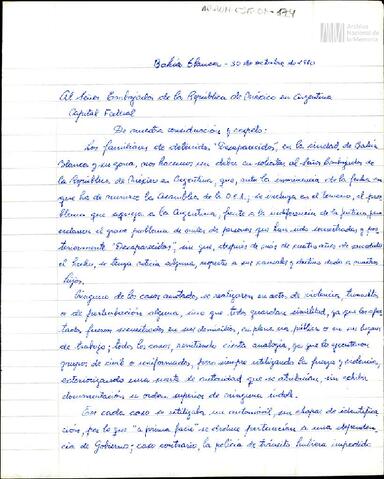 Archivo
Nacional de
la Memoria
Bahía Blanca - 30 de octubre de 1980
Al Señor Embajador de la República de México en Argentina
Capital Federal
De nuestra consideración y respeto:
Los familiares de detenidos "Desaparecidos", en la ciudad de Bahía
Blanca y su zona, nos hacemos un deber en solicitar al Señor Embajador de
la República de México en Argentina, que, ante la inminencia de la fecha en
que ha de reunirse la Asamblea de la O.E.A.; se incluya en el temario, el pro
blema que aqueja a la Argentina, frente a la indiferencia de la justicia para
esclarecer el grave problema de miles de personas que han sido secuestradas y pos
teriormente "Desaparecidas", sin que, después de más de cuatro años de sucedido
el hecho, se tenga noticia alguna, respecto a sus causales y destino dado a nuestros
hijos.
Ninguno de los casos anotados, se realizaron en actos de violencia, tumultos
o de perturbación alguna, sino que todos guardan similitud, ya que los afec
tados fueron secuestrados en sus domicilios, en plena vía pública o en sus lugares
de trabajo; todos los casos, revistiendo cierta analogía, ya que lo ejecutaron
grupos de civil o uniformados, pero siempre utilizando la fuerza y violencia,
exteriorizando una suerte de autoridad que se atribuían, sin exhibir
documentación u orden superior de ninguna índole.
En cada caso se utilizaba un automóvil, sin chapas de identifica
ción, por lo que "a prima facie" se deduce pertenecían a una dependen
cia de Gobierno; caso contrario, la policía de tránsito hubiera impedido